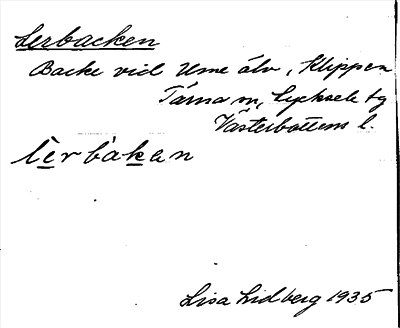 Lerbacken
Backe vid Ume älv, Klippen
Tärna sn, Lycksele tg
Västerbottens l.
lèrbàkan
Lisa Lidberg 1935